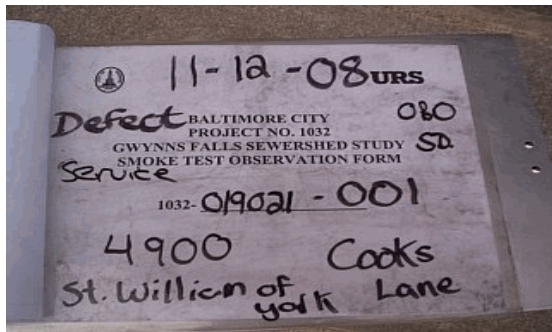 11-12-08 URS
Defect BALTIMORE CITY OBO
PROJECT NO. 1032
GWYNNS FALLS SEWERSHED STUDY SD.
SMOKE TEST OBSERVATION FORM
Service
1032-019021-001
4900 Cooks
St. William of york Lane